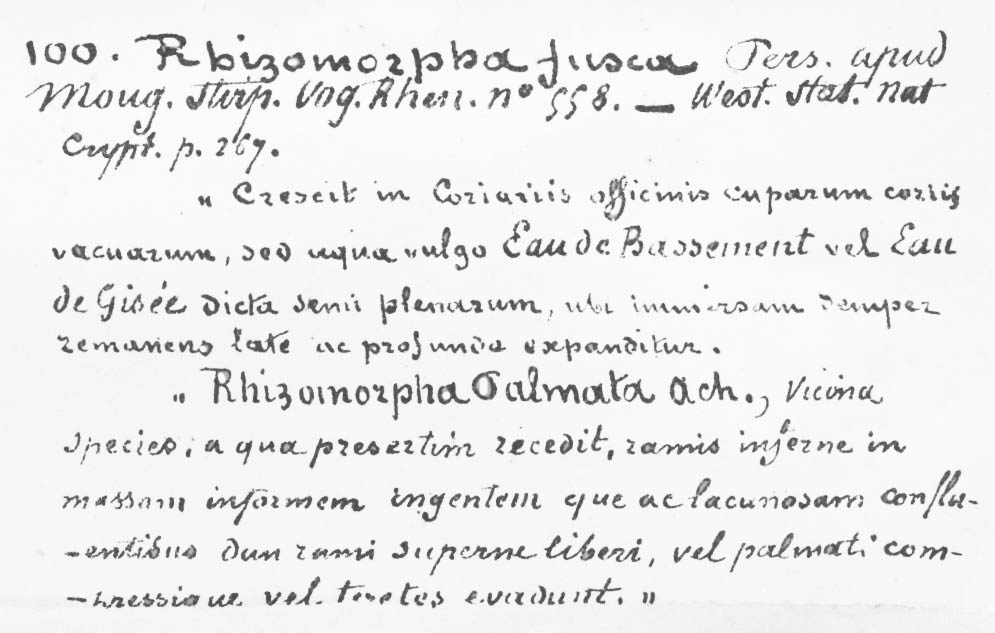 100. Rhizomorpha fusca Pers. apud
Moug. stirp. Vog. Rhen. nº 558. — West. stat. Nat
Crypt. p. 267.
" Crescit in Coriariis officinis cuparum coriis
vacuarum, sed aqua vulgo Eau de Bassement vel Eau
de Gisée dicta semi plenarum, ubi immersam semper
remanens late ac profunde expanditur.
" Rhizomorpha Palmata Ach., vicina
species, a qua presertim recedit, ramis inferne in
massam informem ingentem que ac lacunosam conflu-
-entibus dun rami superne liberi, vel palmati com-
-pressique vel teretes evadunt. "